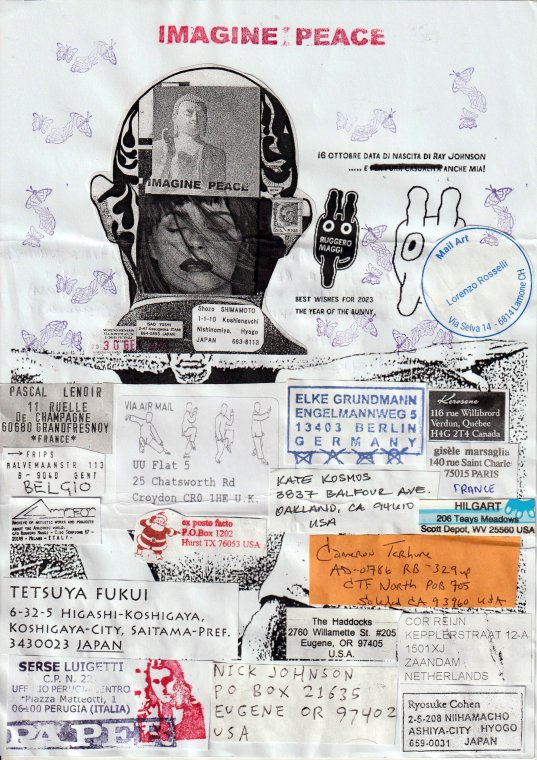 IMAGINE PEACE
16 OTTOBRE DATA DI NASCITA DI RAY JOHNSON
..... E PER PURA CASUALITÀ ANCHE MIA!
IMAGINE PEACE
RUGGERO
MAGGI
Mail Art
Lorenzo Rosselli
Via Selva 14 - 6814 Lamone CH
BEST WISHES FOR 2023
THE YEAR OF THE BUNNY
Shozo SHIMAMOTO
1-1-10 Koshienguchi
Nishinomiya, Hyogo
JAPAN 663-8113
PASCAL LENOIR
11 RUELLE
DE CHAMPAGNE
60680 GRANDFRESNOY
*FRANCE*
VIA AIR MAIL
UU Flat 5
25 Chatsworth Rd
Croydon CR0 1HE U.K.
ELKE GRUNDMANN
ENGELMANNWEG 5
13403 BERLIN
GERMANY
Kerosene
116 rue Willibrord
Verdun, Québec
H4G 2T4 Canada
gisèle marsaglia
140 rue Saint Charle
75015 PARIS
FRANCE
→ FRIPS
B- 9040 GENT
BELGIO
KATE KOSMOS
3837 BALFOUR AVE.
OAKLAND, CA 94610
USA
HILGART
206 Teays Meadows
Scott Depot, WV 25560 USA
ARCHIVE OF ARTISTIC WORKS AND PROJECTS
ABOUT THE AMAZONIC WORLD.
C/O RUGGERO MAGGI - C.SO SEMPIONE 67 -
20149 - MILANO - ITALY -
ex posto facto
P.O.Box 1202
Hurst TX 76053 USA
Cameron Terhune
AD-0786 RB-329
CTF North POB 705
Soledad CA 93960 USA
TETSUYA FUKUI
6-32-5 HIGASHI-KOSHIGAYA,
KOSHIGAYA-CITY, SAITAMA-PREF.
3430023 JAPAN
The Haddocks
2760 Willamette St. #205
Eugene, OR 97405
U.S.A
COR REIJN
KEPPLERSTRAAT 12-A
1501XJ
ZAANDAM
NETHERLANDS
SERSE LUIGETTI
C.P. N. 22
UFFICIO PERUGIA CENTRO
Piazza Matteotti, 1
06100 PERUGIA (ITALIA)
NICK JOHNSON
PO BOX 21635
EUGENE OR 97402
USA
Ryosuke Cohen
2-5-208 NIIHAMACHO
ASHIYA-CITY HYOGO
659-0031 JAPAN